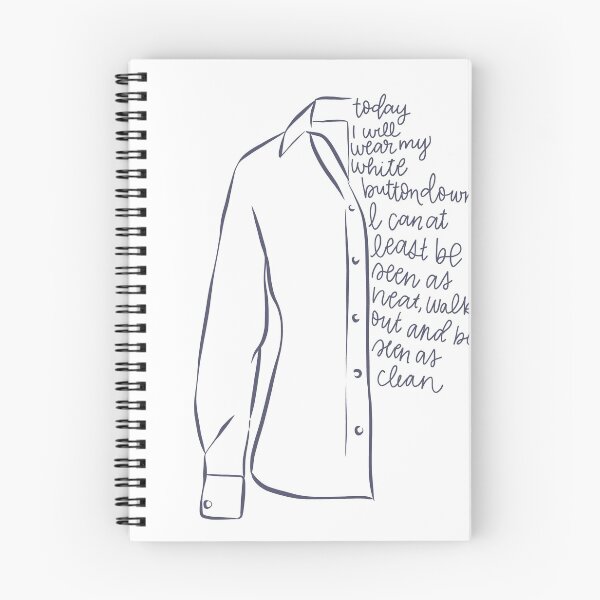 today
I will
wear my
white
buttondown
I can at
least be
seen as
neat, walk
out and be
seen as
clean